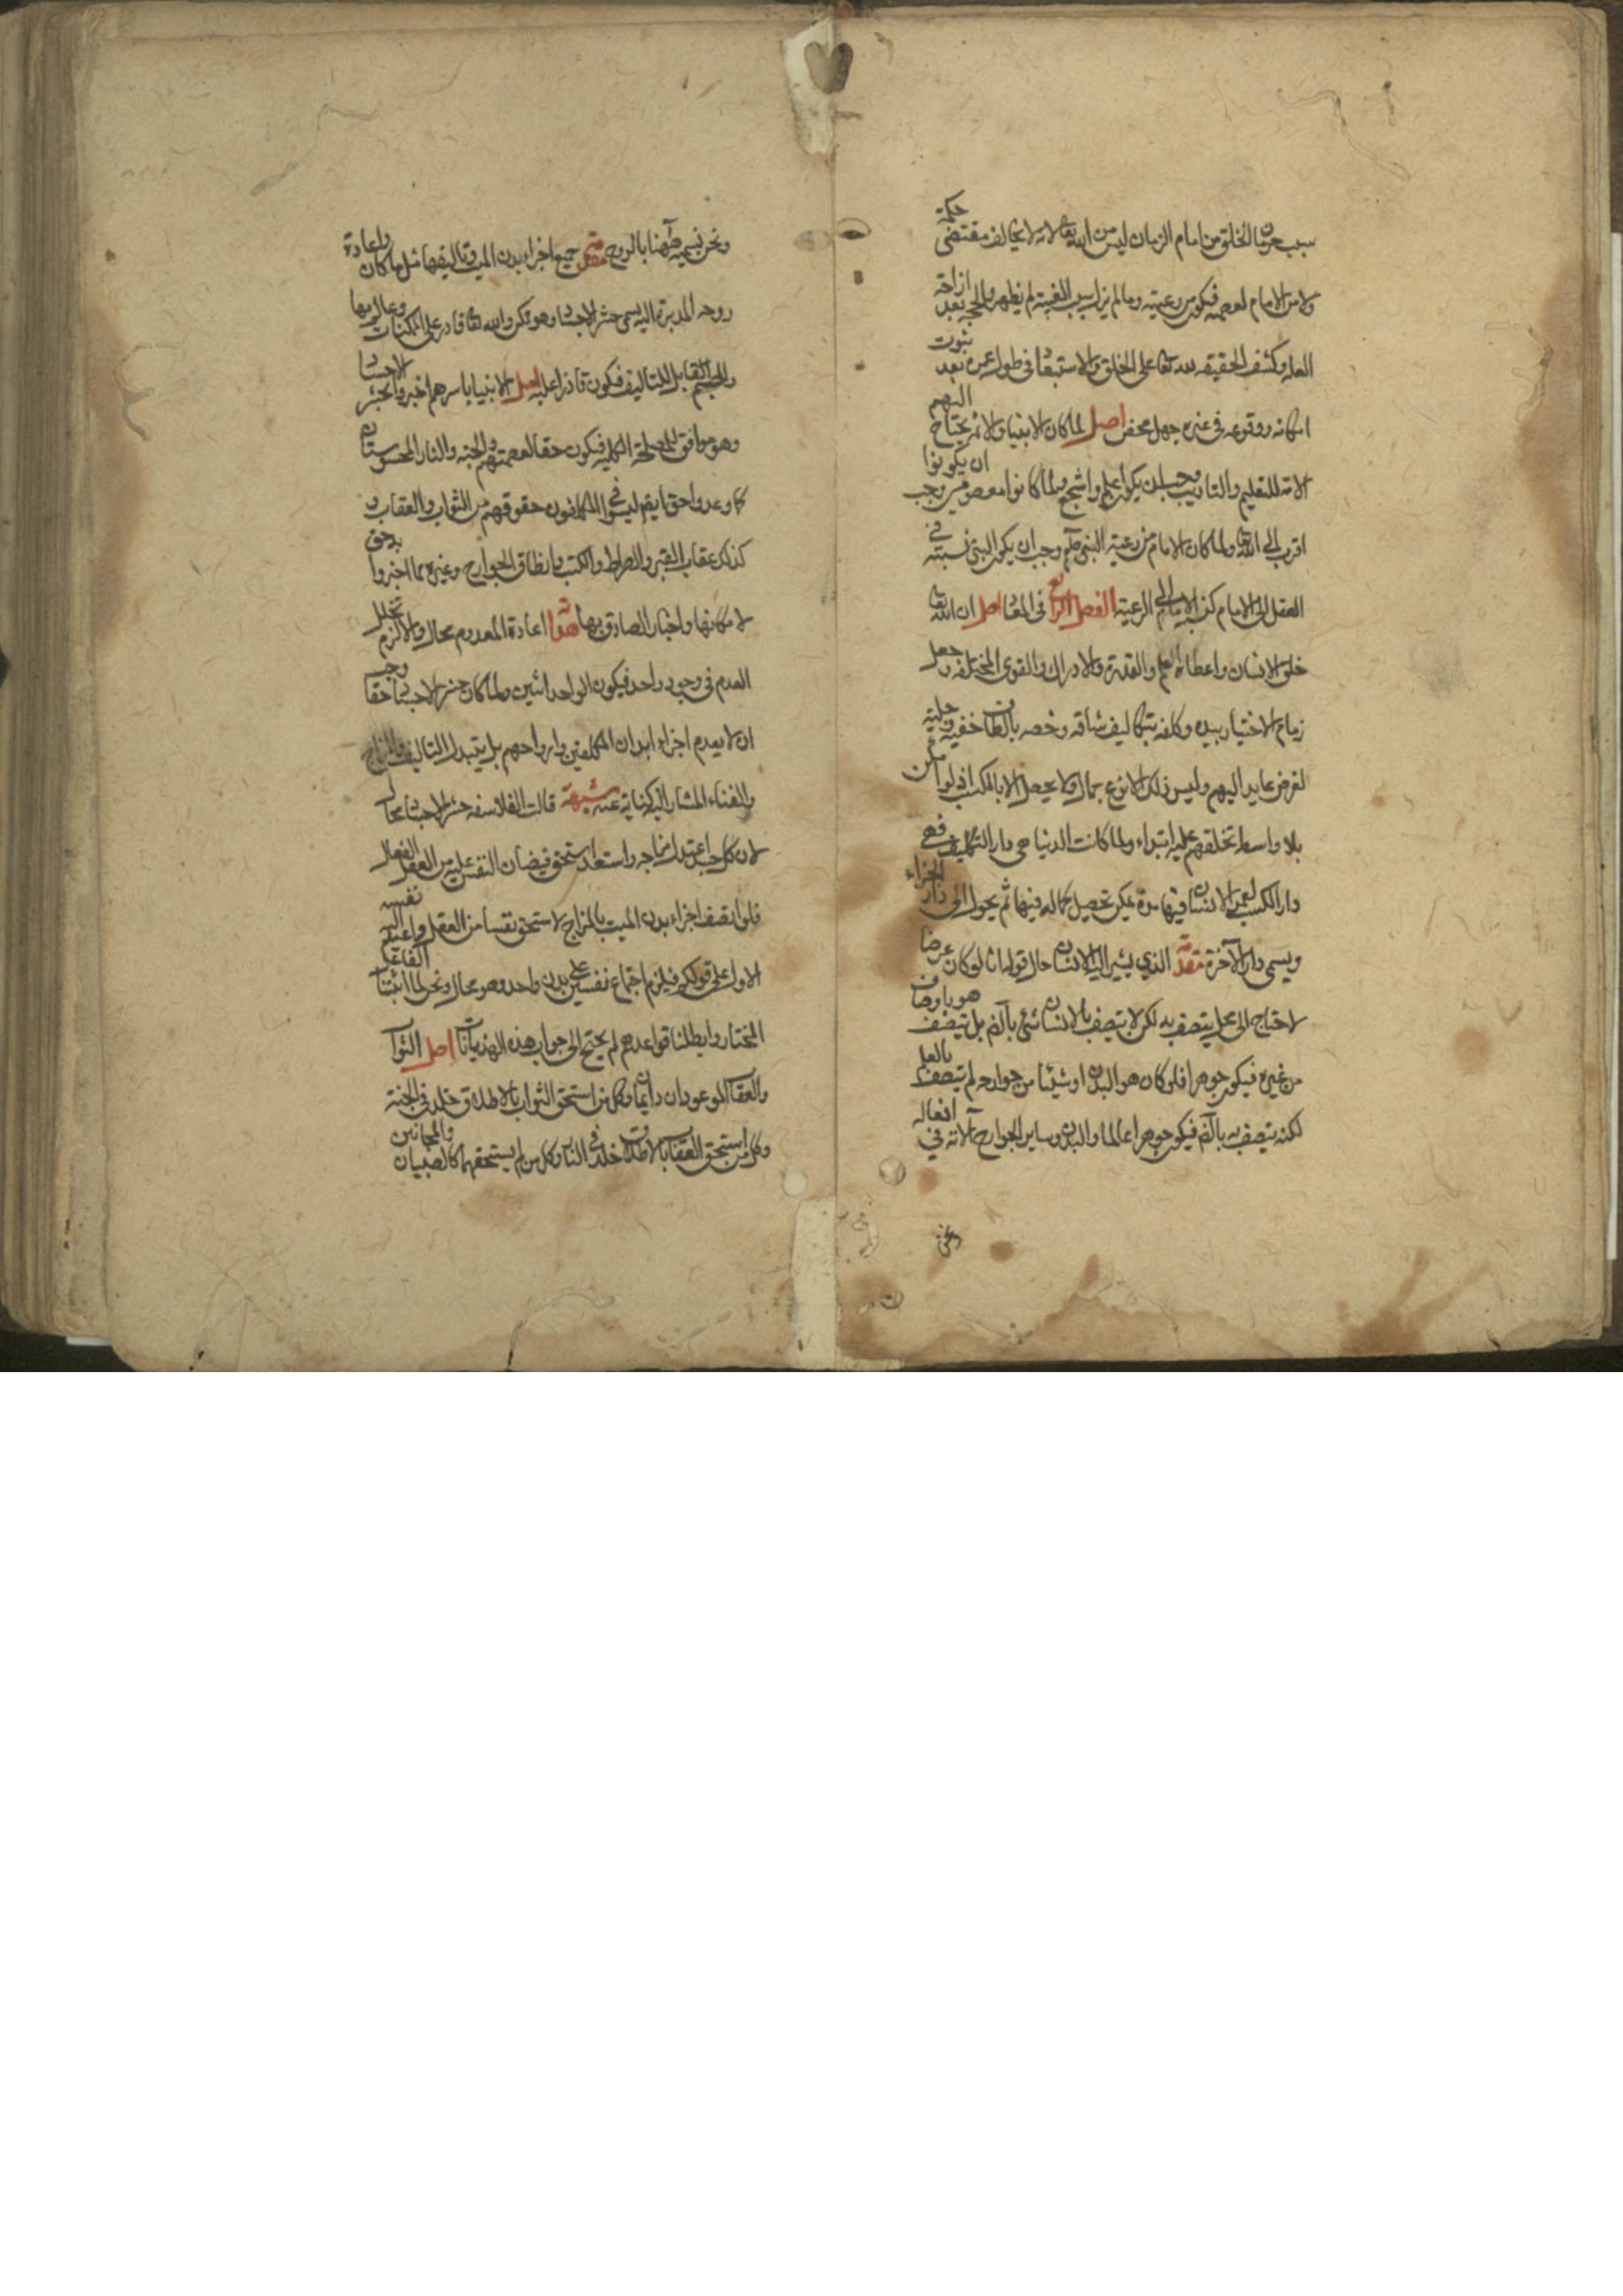 سبب حرمان الخلق من امام الزمان ليس من الله تعالى لانه لا يخالف مقتضى حكمته
ولا من الامام لعصمته فيكون من رعيته وما لم يزل سبب الغيبة لم يظهر والحجة بعد ازاحة
العلة وكشف الحقيقة لله تعالى على الخلق والاستبعاد في طول عمره بعد ثبوت
امكانه ووقوعه في غيره جهل محض اصل لما كان الانبياء والائمة يحتاج اليهم
الامة للتعليم والتاديب وجب ان يكونوا اعلم واشجع ولما كانوا معصومين وجب ان يكونوا
اقرب الى الله تعالى ولما كان الامام من رعية النبي صلم وجب ان يكون النبي نسبته في
العقل الى الامام كنسبة الامام الى الرعية الفصل الرابع في المعاد اصل ان الله تعالى
خلق الانسان واعطاه العلم والقدرة والادراك والقوى المختلفة وجعل
زمام الاختيار بيده وكلفه بتكاليف شاقة وخصه بالطاف خفية وجلية
لغرض عايد اليهم وليس ذلك الا نوع كمال لا يحصل الا بالكسب اذ لو امكن
بلا واسطة لخلقهم عليه ابتداء ولما كانت الدنيا هي دار التكليف فهي
دار الكسب يعمر الانسان فيها مدة يمكن تحصيل كماله فيها ثم يحول الى دار الجزاء
ويسمى دار الآخرة مقدمة الذي يشير اليه الانسان حال قوله انا لو كان عرضا
لاحتاج الى محل يتصف به لكن لا يتصف بالانسان شئ بالضرورة بل يتصف هو باوصاف
من غيره فيكون جوهرا فلو كان هو البدن او شيئا من جوارحه لم يتصف بالعلم
لكنه يتصف به بالضرورة فيكون جوهرا عالما والبدن وساير الجوارح آلاته في افعاله
ونحن
ونحن نسميه ههنا بالروح مقدمة جميع اجزاء بدن الميت وتاليفها مثل ما كان واعادة
روحه المدبرة اليه يسمى حشر الاجساد وهو ممكن والله تعالى قادر على الممكنات وعالم بها
والجسم القابل للتاليف فيكون قادرا عليه اصل الانبياء باسرهم اخبروا بحشر الاجساد
وهو موافق للمصلحة الكلية فيكون حقا لعصمتهم والجنة والنار المحسوستان
كما وعدوا حق ايضا ليستوفي المكلفون حقوقهم من الثواب والعقاب و
كذلك عقاب القبر والصراط والكتب وانطاق الجوارح وغيره مما اخبروا به حق
لامكانها واخبار الصادق بها هداية اعادة المعدوم محال والا لزم تخلل
العدم في وجود واحد فيكون الواحد اثنين ولما كان حشر الاجساد حقا وجب
ان لا يعدم اجزاء ابدان المكلفين وارواحهم بل يتبدل التاليف والمزاج
والفناء المشار اليه كناية عنه شبهة قالت الفلاسفة حشر الاجساد محال
لان كل جسد اعتدل مزاجه واستعد استحق فيضان النفس عليه من العقل الفعال
فلو اتصف اجزاء بدن الميت بالمزاج لاستحق نفسا من العقل واعيد اليه نفسه
الاولى على قولكم فيلزم اجتماع نفسين على بدن واحد وهو محال ونحن لما اثبتنا الفاعل
المختار وابطلنا قواعدهم لم نحتج الى جواب هذه الهذيانات اصل الثواب
والعقاب الموعودان دايمان وكل من استحق الثواب بالاطلاق خلد في الجنة
وكل من استحق العقاب بالاطلاق خلد في النار وكل من لم يستحقهما كالصبيان والمجانين